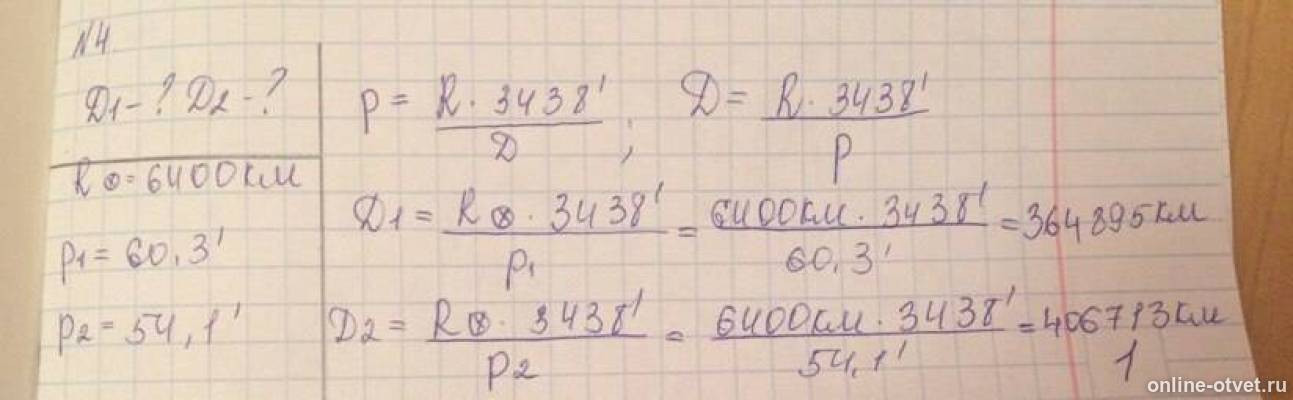 N4
D1-? D2-?
R⊗=6400км
p1=60,3'
p2=54,1'
p = R·3438' / D ; D = R·3438' / p
D1 = R⊗·3438' / p1 = 6400км·3438' / 60,3' = 364895км
D2 = R⊗·3438' / p2 = 6400км·3438' / 54,1' = 406713км
1
online-otvet.ru